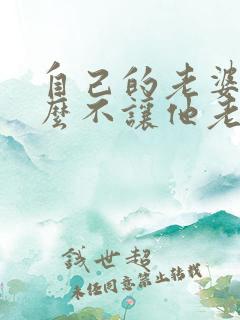 自己的老婆
麼不讓他老
錢世超
未經同意禁止轉載